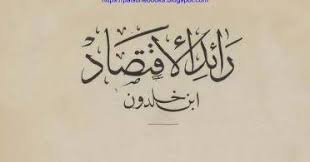 https://palstinebooks.blogspot.com
رائد الاقتصاد
ابن خلدون